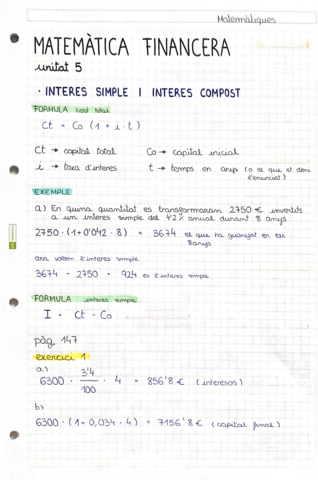 Matemàtiques
MATEMÀTICA FINANCERA
unitat 5
· INTERES SIMPLE I INTERES COMPOST
FORMULA cost total
Ct = Co (1 + i · t)
Ct → capital total Co → capital inicial
i → taxa d'interes t → temps en anys (o el que et doni l'enunciat)
EXEMPLE
a) En quina quantitat es transformaran 2750 € invertits
a un interes simple del 4'2 % anual durant 8 anys
2750 · (1+0'042 · 8) = 3674 el que ha guanyat en els
8 anys
ara volem l'interes simple
3674 - 2750 = 924 es l'interes simple
FORMULA interes simple
I = Ct - Co
pàg. 147
exercici 1
a)
6300 · 3'4/100 · 4 = 856'8 € (interesos)
b)
6300 · (1+0,034 · 4) = 7156'8 € (capital final)